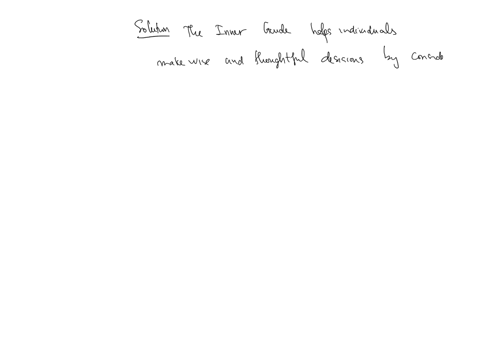 Solution The Inner Guide helps individuals
make wise and thoughtful decisions by